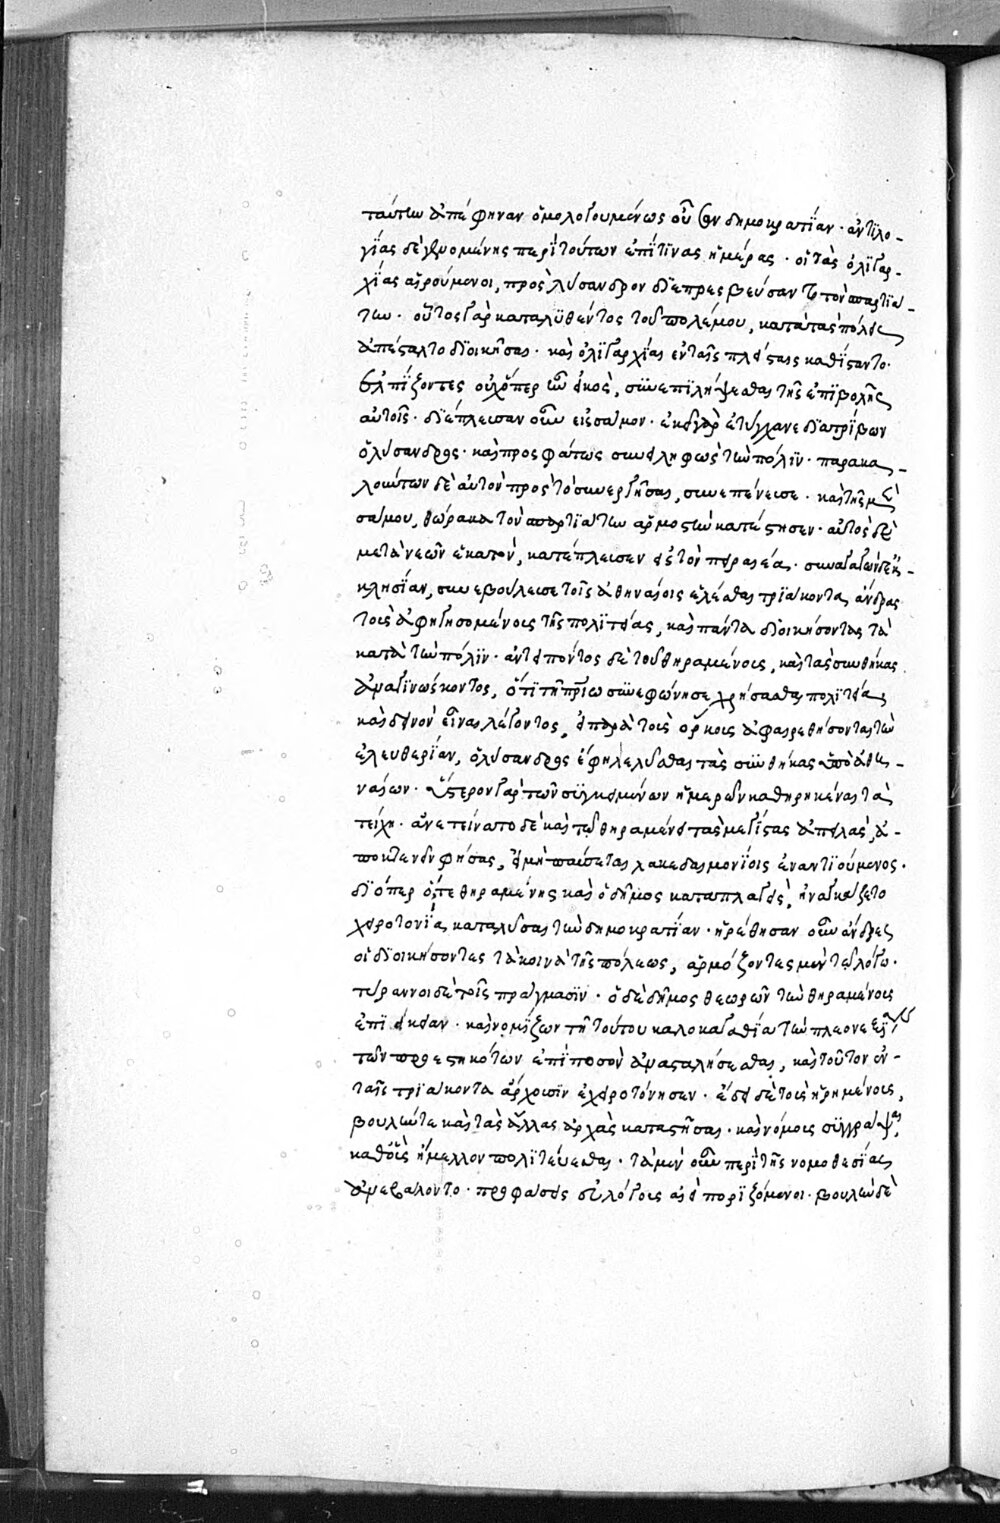 ταύτην ἀπέφηναν ὁμολογουμένως οὖσαν δημοκρατίαν· ἀντιλο-
γίας δὲ γενομένης περὶ τούτων ἐπί τινας ἡμέρας· οἱ τὰς ὀλιγαρ-
χίας αἱρούμενοι, πρὸς λύσανδρον διεπρεσβεύσαντο τὸν σπαρτιά-
την· οὗτος γὰρ καταλυθέντος τοῦ πολέμου, κατὰ τὰς πόλεις
ἀπέσταλτο διοικῆσαι· καὶ ὀλιγαρχίας ἐν ταῖς πλείσταις καθίσταντο·
ἐλπίζοντες οὖν ὅπερ ἦν εἰκὸς, συνεπιλήψεσθαι τῆς ἐπιβολῆς
αὐτοῖς· διέπλευσαν οὖν εἰς σάμον· ἐκεῖ γὰρ ἐτύγχανε διατρίβων
ὁ λύσανδρος· καὶ προσφάτως συνειληφὼς τὴν πόλιν· παρακα-
λούντων δὲ αὐτὸν πρὸς τὸ συνεργῆσαι, συνεπένευσε· καὶ τῆς μὲν
σάμου, θώρακα τὸν σπαρτιάτην ἁρμοστὴν κατέστησεν· αὐτὸς δὲ
μετὰ νεῶν ἑκατὸν, κατέπλευσεν εἰς τὸν πειραιέα· συναγαγὼν δὲ ἐκ-
κλησίαν, συνεβούλευσε τοῖς ἀθηναίοις ἑλέσθαι τριάκοντα ἄνδρας
τοὺς ἀφηγησομένους τῆς πολιτείας, καὶ πάντα διοικήσοντας τὰ
κατὰ τὴν πόλιν· ἀντειπόντος δὲ τοῦ θηραμένους, καὶ τὰς συνθήκας
ἀναγινώσκοντος, ὅτι τῆ πατρίω συνεφώνησε χρήσασθαι πολιτεία
καὶ δεινὸν εἶναι λέγοντος, εἰ παρὰ τοὺς ὅρκους ἀφαιρεθήσονται τὴν
ἐλευθερίαν, ὁ λύσανδρος ἔφη λελύσθαι τὰς συνθήκας ὑπὸ ἀθη-
ναίων· ὕστερον γὰρ τῶν συγκειμένων ἡμερῶν καθηρηκέναι τὰ
τείχη· ἀνετείνατο δὲ καὶ τῶ θηραμένει τὰς μεγίστας ἀπειλὰς, ἀ-
ποκτενεῖν φήσας, εἰ μὴ παύσεται λακεδαιμονίοις ἐναντιούμενος·
διόπερ ὅ τε θηραμένης καὶ ὁ δῆμος καταπλαγεὶς, ἠναγκάζετο
χειροτονία καταλῦσαι τὴν δημοκρατίαν· ἡρέθησαν οὖν ἄνδρες
οἱ διοικήσοντες τὰ κοινὰ τῆς πόλεως, ἁρμόζοντες μὲν τῶ λόγω·
τύραννοι δὲ τοῖς πράγμασιν· ὁ δὲ δῆμος θεωρῶν τὴν θηραμένους
ἐπιείκειαν· καὶ νομίζων τῆ τούτου καλοκαγαθία τὴν πλεονεξίαν
τῶν προεστηκότων ἐπὶ ποσὸν ἀνασταλήσεσθαι, καὶ τοῦτον ἐν
ταῖς τριάκοντα ἄρχουσιν ἐχειροτόνησεν· ἔδει δὲ τοὺς ἡρημένους,
βουλήν τε καὶ τὰς ἄλλας ἀρχὰς καταστῆσαι· καὶ νόμους συγγράψαι,
καθ' οὓς ἤμελλον πολιτεύεσθαι· τὰ μὲν οὖν περὶ τῆς νομοθεσίας
ἀνεβάλοντο· προφάσεις εὐλόγους ἀεὶ ποριζόμενοι· βουλὴν δὲ